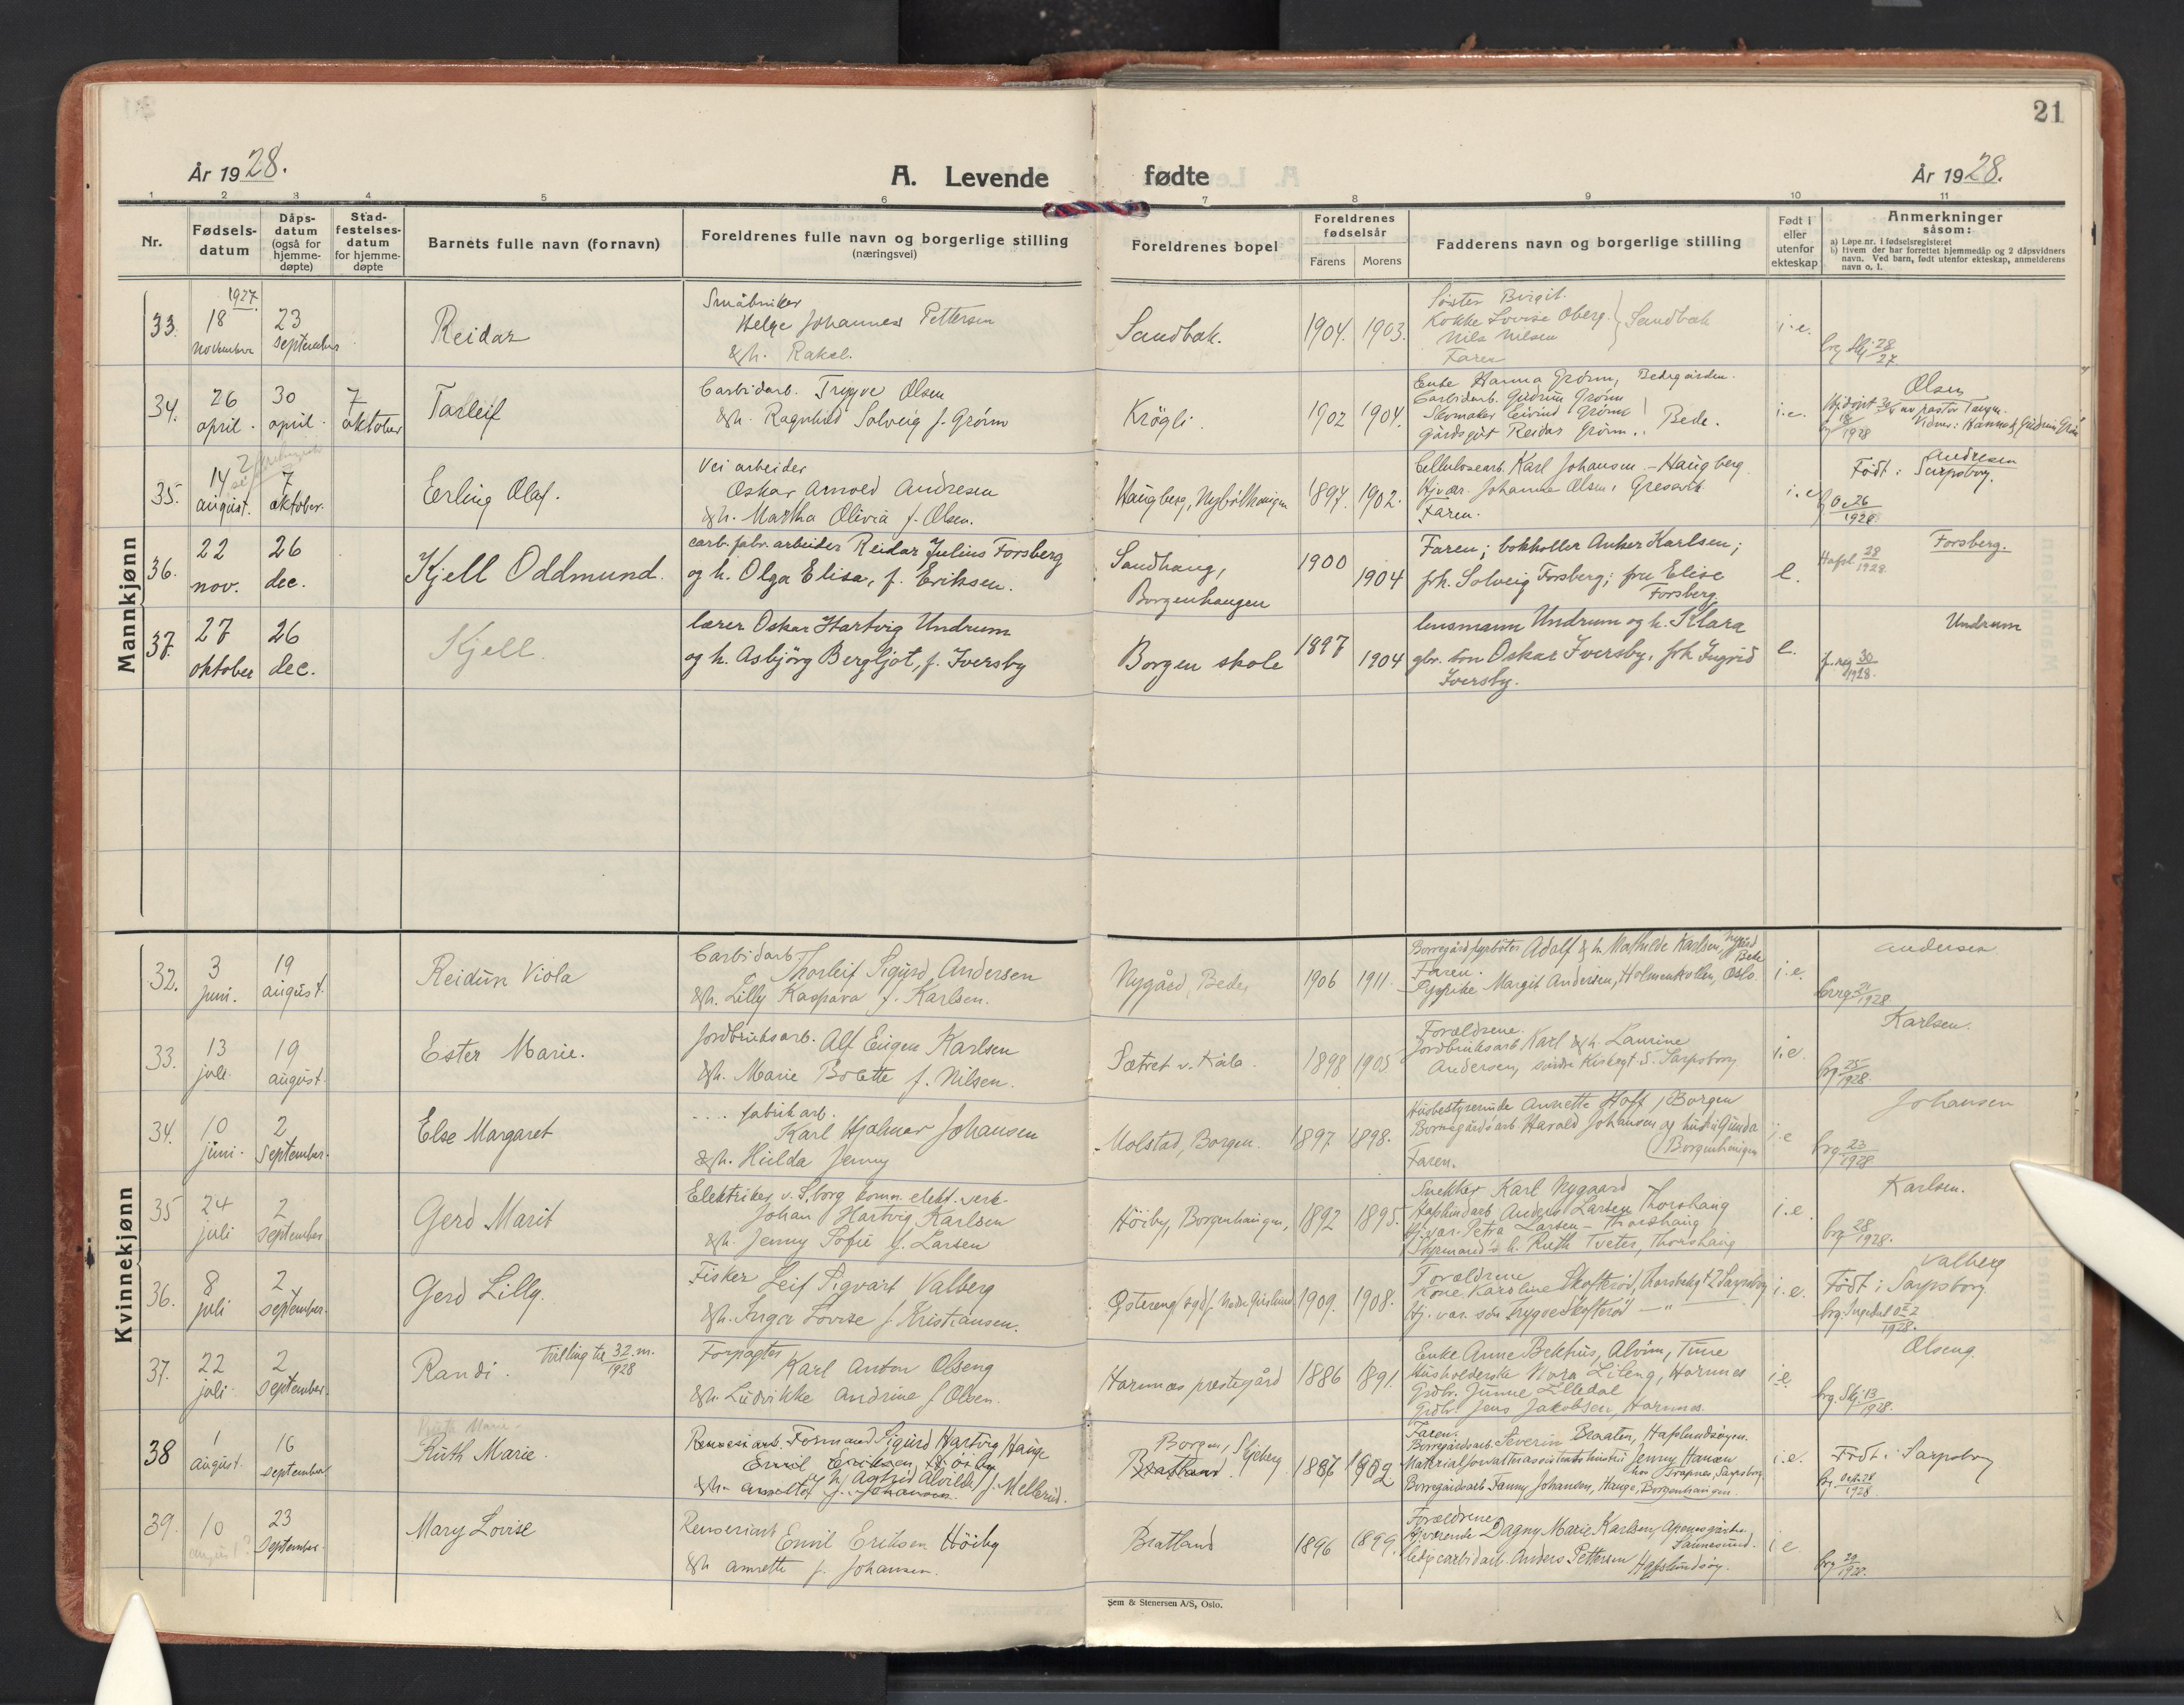 21
År 1928.
A. Levende fødte
År 1928.
1 2 3 4 5 6 7 8 9 10 11
Nr.
Fødsels-
datum
Dåps-
datum
(også for
hjemme-
døpte)
Stad-
festelses-
datum
for hjemme-
døpte
Barnets fulle navn (fornavn)
Foreldrenes fulle navn og borgerlige stilling
(næringsvei)
Foreldrenes bopel
Foreldrenes
fødselsår
Farens Morens
Fadderens navn og borgerlige stilling
Født i
eller
utenfor
ekteskap
Anmerkninger
såsom:
a) Løpe nr. i fødselsregisteret
b) Hvem der har forrettet hjemmedåp og 2 dåpsvidners
navn. Ved barn, født utenfor ekteskap, anmelderens
navn o. l.
Mannkjønn
33.
1927.
18
november
23
september
Reidar
Småbruker
Helge Johannes Pettersen
& h. Rakel.
Sandbak.
1904. 1903.
Søster Birgit.
Kokke Lovise Oberg.
Nils Nilsen
Faren
Sandbak
i.e.
28
27.
34.
26
april.
30
april.
7
oktober
Tarleif
Carbidarb. Trygve Olsen
& h. Ragnhild Solveig f. Grönn
Krögli.
1902 1904.
Enke Hanna Grönn, Bedegården.
Carbidarb. Gudrun Grönn
Skomaker Eivind Grönn
Gårdsgut Reidar Grönn..
Bede.
i.e.
Olsen
av pastor Tangen.
18
1928
Vidner: Hanna & Gudrun Grönn
35.
14
august.
7
oktober.
Erling Olaf.
Vei arbeider
Oskar Arnold Andresen
& h. Martha Olivia f. Olsen.
Haugberg, Nybölhaugen
1897. 1902.
Cellulosearb. Karl Johansen - Haugberg.
Hjvær. Johanne Olsen,
Faren.
i.e.
Andresen
Född i Sarpsborg.
26
1928
36.
22
nov.
26
dec.
Kjell Oddmund.
carb.fabr.arbeider Reidar Julius Forsberg
og h. Olga Elisa, f. Eriksen.
Sandhaug,
Borgenhaugen
1900
1904
Faren; bokholler Anker Karlsen;
frk. Solveig Forsberg; fru Elise
Forsberg.
e.
Forsberg.
Hafsl 28
1928.
37.
27
oktober
26
dec.
Kjell.
lærer Oskar Hartvig Undrum
og h. Asbjörg Bergljot, f. Iversby
Borgen skole
1897
1904
lensmann Undrum og h. Klara
gbr. sön Oskar Iversby, frk Ingrid
Iversby.
e.
Undrum
f.reg 30
1928.
Kvinnekjønn
32.
3
juni.
19
august.
Reidun Viola
Carbidarb.
Thorleif Sigurd Andersen
& h. Lilly Kaspara f. Karlsen.
Nygård, Bede,
1906 1911.
Borregård fyrböter Adolf & h. Mathilde Karlsen, Nygård
Bede
Faren.
Margit Andersen, Holmenkollen, Oslo.
i.e.
Andersen
Brg 21
1928
33.
13
juli.
19
august.
Ester Marie.
Jordbruksarb. Alf Eugen Karlsen
& h. Marie Bolette f. Nilsen.
Sætret v. Kala.
1898 1905
Forældrene.
Jordbruksarb Karl & h. Laurine
Andersen, söndre Kisegt 5. Sarpsborg
i.e.
Karlsen.
Brg. 25
1928.
34.
10
juni.
2
september.
Else Margaret
.... fabrikarb.
Karl Hjalmar Johansen
& h. Hilda Jenny
Molstad, Borgen.
1897. 1898.
Husbestyrerinde Annette Hoff, Borgen
Borregårdsarb Harald Johansen og hustru Gunda
Borgenhaugen
Faren.
i.e
Johansen
brg. 23
1928
35
24
juli
2
september
Gerd Marit
Elektriker v. S.borg komm. elekt. verk.
Johan Hartvig Karlsen
& h. Jenny Sofie f. Larsen
Höiby, Borgenhaugen,
1892 1895.
Snekker Karl Nygaard
Anders Larsen Thorshaug
Hj.vær. Petra Larsen - Thorshaug
h. Ruth Tveter, Thorshaug
i.e.
Karlsen.
brg 28
1928.
36.
8
juli
2
september.
Gerd Lilly.
Fisker Leif Sigvart Valberg
& h. Inga Lovise f. Kristiansen.
1909. 1908.
Forældrene
Kone Karoline Skofteröd, Thorsbekgt 2 Sarpsborg
Hj. vær. sön Trygve Skofteröd — „ —
i.e.
Valberg
Födt i Sarpsborg
brg. Ingedal 2
1928.
37.
22
juli
2
september.
Randi.
Tvilling til 32.m.
1928
Forpagter
Karl Anton Olseng
& h. Ludvikke Andrine f Olsen.
Harmnes prestegård
1886 1891.
Enke Anne Bekhus, Alvim, Tune
Husholderske Nora Lileng, Harmnes
Grdbr. Elledal
Grdbr. Jens Jakobsen, Harmnes.
i.e
Olseng.
brg. Skj 13
1928.
38
1
august.
16
september
Ruth Marie
Ruth Marie.
Renseriarb. Formand Sigurd Hartvig Hauge
Emil Eriksen Höiby
og h. Astrid Alvilde f. Mellerud.
& h. Annette f. Johansen.
Borgen, Skjeberg
Bratland.
1897 1902
Faren.
Borregårdsarb. Severin Braaten, Hafslundsöyen.
Materialforvalterassistents hustru Jenny Hansen
Sarpsborg
Borregårdsarb Fanny Johansen, Hauge, Borgenhaugen.
i.e.
Födt i Sarpsborg
28
1928.
39.
10
august?
23
september.
Mary Lovise
Renseriarb
Emil Eriksen Höiby
& h Annette f. Johansen.
Bratland
1896 1899.
Forældrene,
Hjværende Dagny Marie Karlsen,
Sannesund.
carbidarb. Anders Pettersen Hafslundsöy.
i.e.
brg 29
1928.
Sem & Stenersen A/S, Oslo.